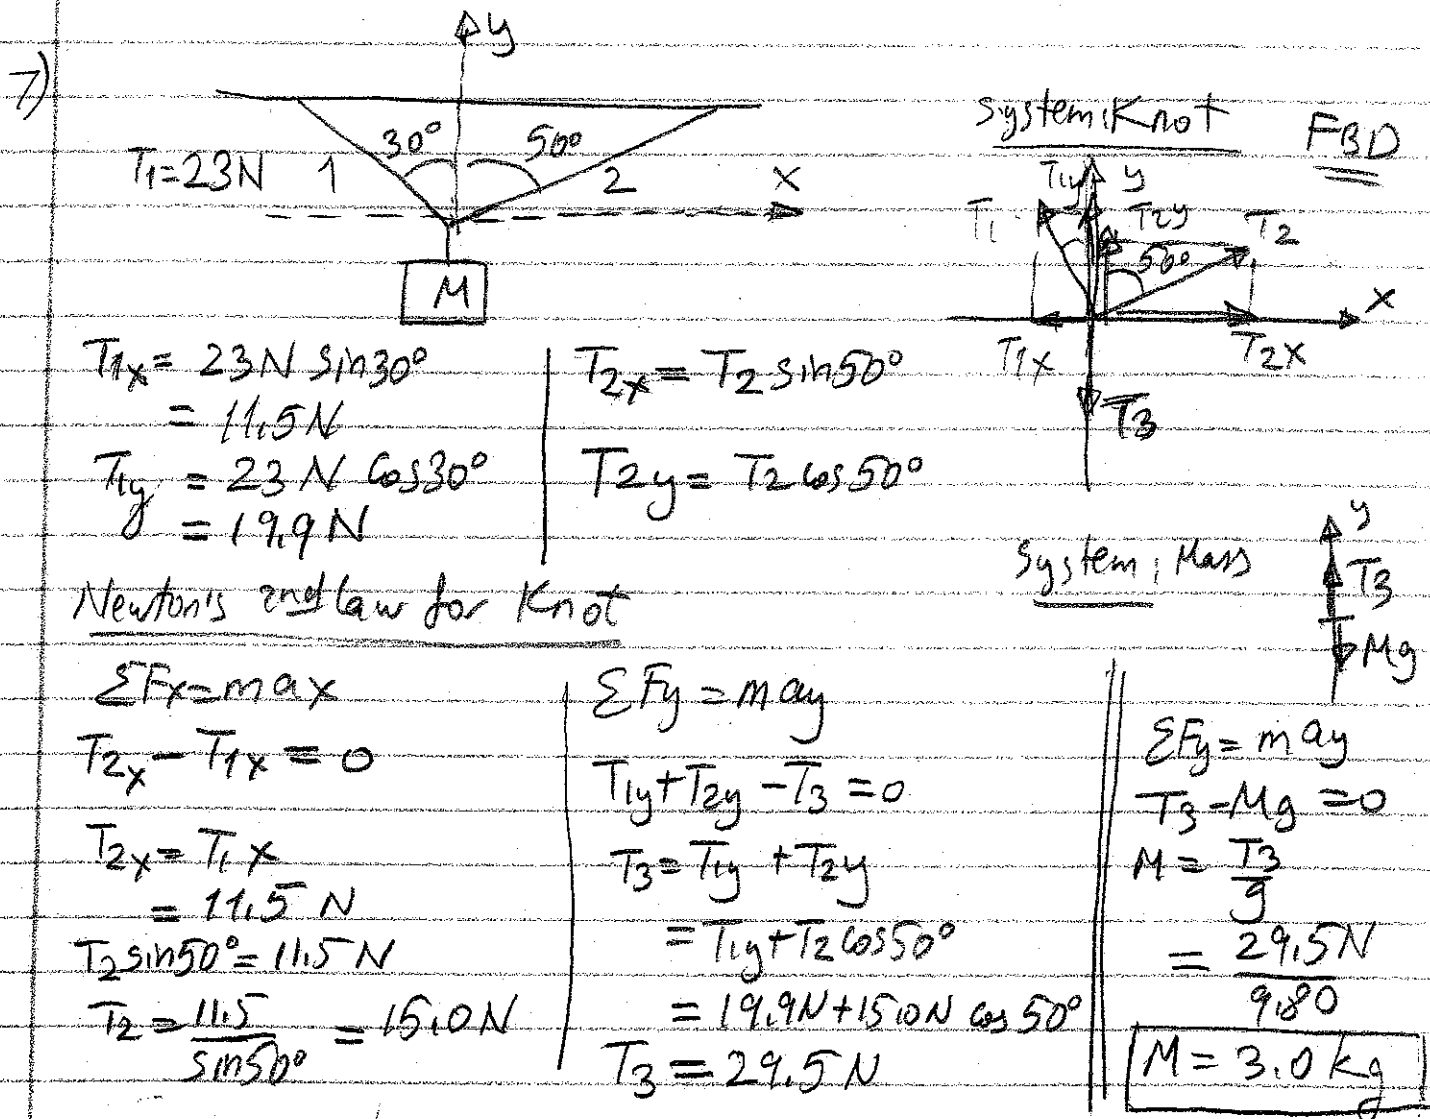 7)
y
30° 50°
T₁=23N 1 2 x
M
System: Knot FBD
T₁y y
T₁ T₂y T₂
50°
x
T₁x T₂x
T₃
T₁x = 23N sin30°
= 11.5N
T₁y = 23N cos30°
= 19.9N
T₂x = T₂ sin50°
T₂y = T₂ cos50°
System: Mass
y
T₃
Mg
Newton's 2nd law for Knot
ΣFx = max
T₂x - T₁x = 0
T₂x = T₁x
= 11.5 N
T₂ sin50° = 11.5N
T₂ = 11.5/sin50° = 15.0N
ΣFy = may
T₁y + T₂y - T₃ = 0
T₃ = T₁y + T₂y
= T₁y + T₂ cos50°
= 19.9N + 15.0N cos 50°
T₃ = 29.5N
ΣFy = may
T₃ - Mg = 0
M = T₃/g
= 29.5N/9.80
M = 3.0 kg